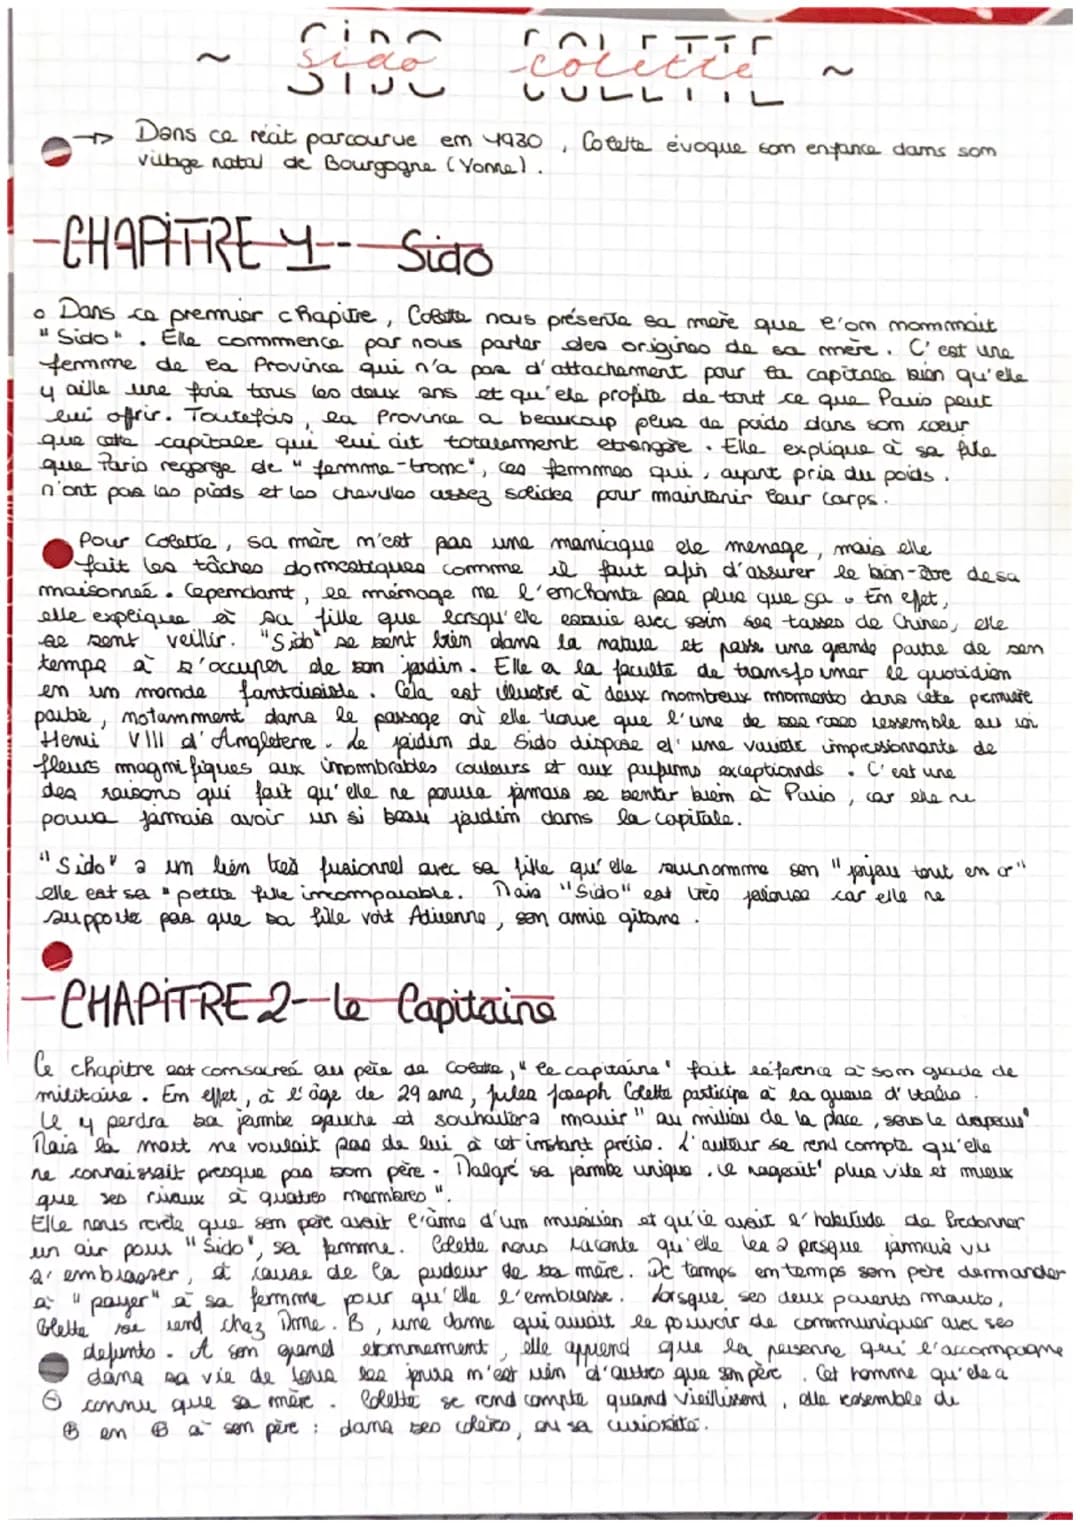 ~ sido colette ~
→ Dans ce récit parcourue en 1930, Colette évoque son enfance dans son
village natal de Bourgogne (Yonne).
CHAPITRE 1 - Sido
o Dans ce premier chapitre, Colette nous présente sa mère que l'on nommait
"Sido". Elle commence par nous parler des origines de sa mère. C'est une
femme de la Province qui n'a pas d'attachement pour la capitale bien qu'elle
y aille une fois tous les deux ans et qu'elle profite de tout ce que Paris peut
lui offrir. Toutefois, la Province a beaucoup plus de poids dans son coeur
que cette capitale qui lui est totalement étrangère. Elle explique à sa fille
que Paris regorge de "femme-tronc", ces femmes qui, ayant pris du poids,
n'ont pas les pieds et les chevilles assez solides pour maintenir leur corps.
Pour Colette, sa mère n'est pas une maniaque de ménage, mais elle
fait les tâches domestiques comme il faut afin d'assurer le bien-être de sa
maisonnée. Cependant, le ménage ne l'enchante pas plus que ça. En effet,
elle explique à sa fille que lorsqu'elle essuie avec soin ses tasses de Chines, elle
se sent veillir. "Sido" se sent bien dans la nature et passe une grande partie de son
temps à s'occuper de son jardin. Elle a la faculté de transformer le quotidien
en un monde fantaisiste. Cela est illustré à deux nombreux moments dans cette première
partie, notamment dans le passage où elle trouve que l'une de ses roses ressemble au roi
Henri VIII d'Angleterre. Le jardin de Sido dispose d'une variété impressionnante de
fleurs magnifiques aux innombrables couleurs et aux parfums exceptionnels. C'est une
des raisons qui fait qu'elle ne pourra jamais se sentir bien à Paris, car elle ne
pourra jamais avoir un si beau jardin dans la capitale.
"Sido" a un lien très fusionnel avec sa fille qu'elle surnomme son "joyau tout en or"
elle est sa "petite fille incomparable. Mais "Sido" est très jalouse car elle ne
supporte pas que sa fille voit Adrienne, son amie gitane.
CHAPITRE 2 - le Capitaine
Ce chapitre est consacré au père de Colette, "le capitaine" fait référence à son grade de
militaire. En effet, à l'âge de 29 ans, Jules Joseph Colette participe à la guerre d'Italie.
Il y perdra sa jambe gauche et souhaitera mourir "au milieu de la place, sous le drapeau"
Mais la mort ne voulait pas de lui à cet instant précis. L'auteur se rend compte qu'elle
ne connaissait presque pas son père. Malgré sa jambe unique, il nageait "plus vite et mieux
que ses rivaux à quatres membres".
Elle nous révèle que son père avait l'âme d'un musicien et qu'il avait l'habitude de fredonner
un air pour "Sido", sa femme. Colette nous raconte qu'elle les a presque jamais vu
s'embrasser, à cause de la pudeur de sa mère. De temps en temps son père demander
à "payer" à sa femme pour qu'elle l'embrasse. Lorsque ses deux parents morts,
Colette se rend chez Mme. B, une dame qui aurait le pouvoir de communiquer avec ses
défunts. A son grand étonnement, elle apprend que la personne qui l'accompagne
dans sa vie de tous les jours n'est rien d'autres que son père. Cet homme qu'elle a
⊖ connu que sa mère. Colette se rend compte quand vieillissent, elle resemble de
⊕ en ⊕ à son père : dans ses colères, ou sa curiosité.